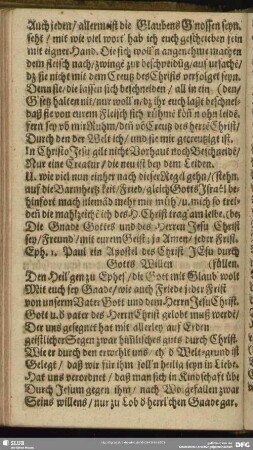 Auch jeden / allermeist die Glaubens Gnossen seyn.
seht / mit wie viel wort hab ich euch geschrieben zeln
mit eigner Hand. Die sich woll'n angenehme machen
dem fleisch nach / zwingē zur beschneidūg / auf ursachē /
dz sie nicht mit dem Creutz des Christs verfolget seyn.
Denn sie / die lassen sich beschneiden / all in ein (den /
G'setz halten nit / nur woll'n / dz ihr euch laßt beschnei-
daß sie von eurem Fleisch sich rühmē kön'n ohn leids.
fern sey vō mir Ruhm / den vō Creutz des herrē Christ /
Durch den der Welt ich / und sie mir gecreutzigt ist.
In Christo Jesu gilt nicht Vorhaut noch Beschneidē /
Nur eine Creatur / die neu ist bey dem Leiden.
U. wie viel nun einher nach dieser Regel gehn / (stehn.
auf die Barmhertzkeit / Fried / gleich Gotts Israel
hinfort mach niemād mehr mir müh / u. mich so trei-
deñ die mahlzeichē ich des H. Christ trag am leibe. (be;
Die Gnade Gottes und des Herren Jesu Christ
sey / Freund / mit eurem Geist, ja Amen / jeder Frist.
Eph. 1. Paul ein Apostel des Christ JEsu durch
Gotts Willen (füllen.
Den Heil'gen zu Ephes / die Gott mit Glaub wolt
Mit euch sey Gnade / wie auch Friede jeder Frist
von unserm Vater Gott und dem Herrn Jesu Christ.
Gott u. d vater des Herrn Christ gelobt muß werdē /
Der uns gesegnet hat mit allerley auf Erden
geistlicher Segen zwar hīmlisches guts durch Christ.
Wie er durch den erwehlt uns / eh' d Welt-grund ist
Gelegt / daß wir für ihm / soll'n heilig seyn in Liebe.
Hat uns verordnet / daß man sich in Kindschaft übt
Durch Jesum gegen ihm / nach Wolgefallen zwar
Seins willens / nur zu Lob d herrl'chen Gnade gar.
SLUB